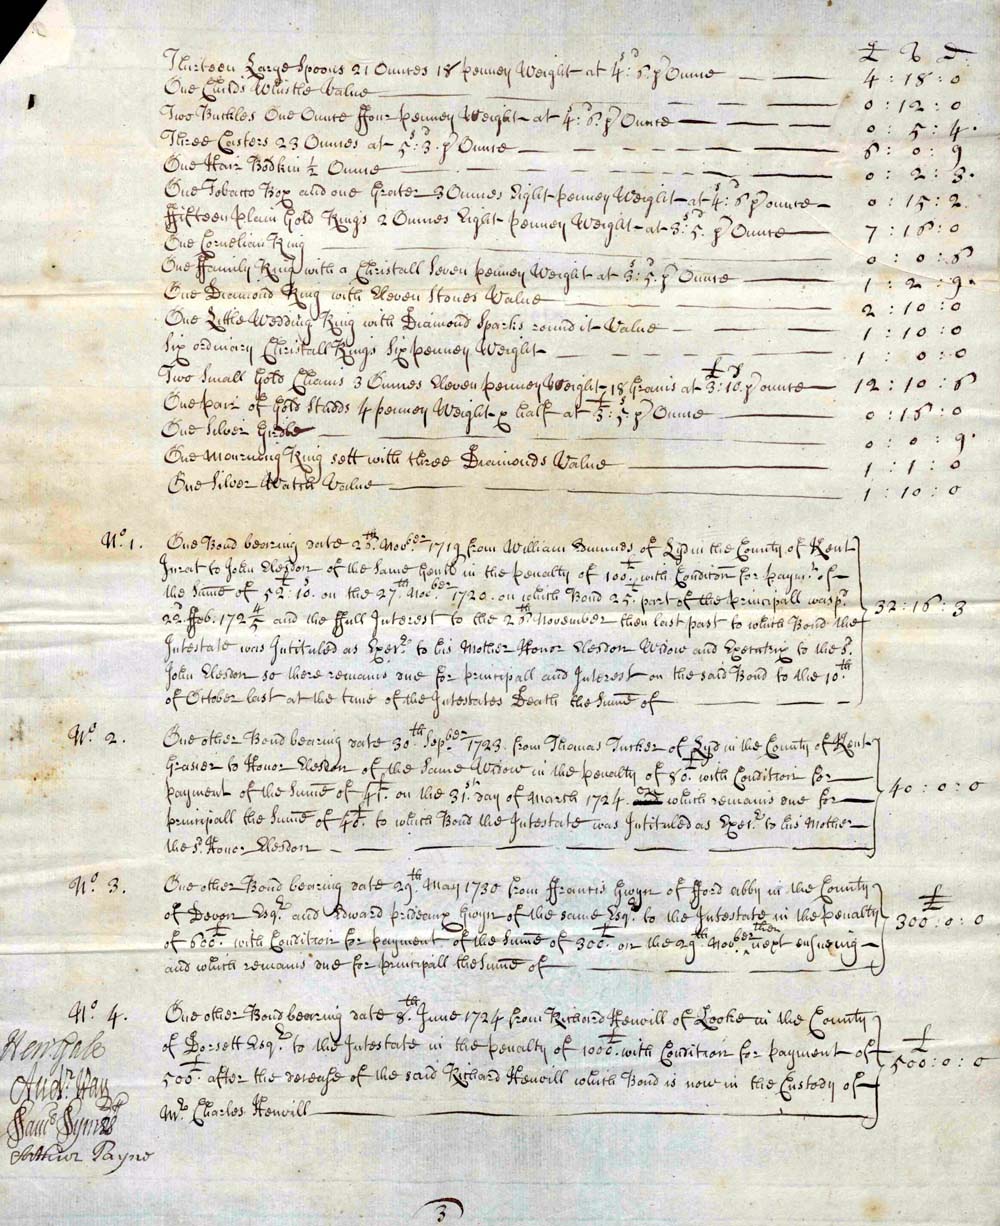 £ s D
Thirteen Large Spoons 21 Ounces 18 penney Weight at 4s: 6d. pr Ounce — 4 : 18 : 0
One Childs Whistle Value — 0 : 12 : 0
Two Buckles One Ounce ffour penney Weight at 4s: 6d. pr Ounce — 0 : 5 : 4.
Three Casters 23 Ounces at 5s: 3d. pr Ounce — 6 : 0 : 9
One Hair Bodkin ½ Ounce — 0 : 2 : 3.
One Tobacco Box and one Grater 3 Ounces Eight penney Weight at 4s: 6d pr ounce — 0 : 15 : 2
ffifteen plain Gold Rings 2 Ounces Eight penney Weight at 3: 5. pr Ounce — 7 : 16 : 0
One Cornelian Ring — 0 : 0 : 6
One ffamily Ring with a Christall Seven penney Weight at 3: 5. pr Ounce — 1 : 2 : 9.
One Diamond Ring with Eleven Stones Value — 2 : 10 : 0
One Little Wedding Ring with Diamond Sparks round it Value — 1 : 10 : 0
Six ordinary Christall Rings Six penney Weight — 1 : 0 : 0
Two Small Gold Chains 3 Ounces Eleven penney Weight 18 Grains at £3: 10s. pr ounce — 12 : 10 : 6
One pair of Gold Studds 4 penney Weight & half at 3: 5. pr Ounce — 0 : 16 : 0
One Silver — 0 : 0 : 9.
One Mourning Ring sett with three Diamonds Value — 1 : 1 : 0
One Silver Watch Value — 1 : 10 : 0
No. 1. One Bond bearing date 26th. Novber 1719 from William of Lyd in the County of Kent
Jurat to John Elesdon of the Same Gent in the penalty of 100£. with Condicon for paymt. of
the Sume of 52£: 10s. on the 27th. Novber 1720. on which Bond 25£. part of the principall was pd.
22d. Feb. 1724/5 and the ffull Interest to the 26th November then last past to which Bond the — 32 : 16 : 3
Intestate was Intituled as Exer. to his Mother Honor Elesdon Widow and Executrix to the sd.
John Elesdon so there remains due for principall and Interest on the said Bond to the 10th
of October last at the time of the Intestates Death the Sume of
No. 2. One other Bond bearing date 30th Sepber. 1723. from Thomas Tucker of Lyd in the County of Kent
Grasier to Honor Elesdon of the Same Widow in the penalty of 80£. with Condition for
payment of the Sume of 41£. on the 31st. day of March 1724. which remains due for — 40 : 0 : 0
principall the Sume of 40£. to which Bond the Intestate was Intituled as Exer. to his Mother
the sd. Honor Elesdon
No. 3. One other Bond bearing date 29th. May 1730 from ffrancis Gwyn of fford abby in the County
of Devon Esqr. and Edward prideaux Gwyn of the same Esqr. to the Intestate in the penalty
of 600£. with Condition for payment of the Sume of 300£. on the 29th Novber. then next ensueing — £ 300 : 0 : 0
and which remains due for principall the Sume of
No. 4. One other Bond bearing date 8th. June 1724 from Richard Henvill of Looke in the County
of Dorsett Esqr. to the Intestate in the penalty of 1000£. with Condition for payment of — £ 500 : 0 : 0
500£. after the decease of the said Richard Henvill which Bond is now in the Custody of
Mr. Charles Henvill
Hen: Gale
Andr. Hay
Saml. Symes
Arthur Payne
3